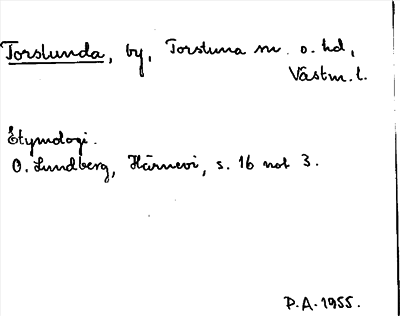 Torslunda, by, Torstuna sn. o. hd,
Västm. l.
Etymologi.
O. Lundberg, Härnevi, s. 16 not 3.
P.A. 1955.